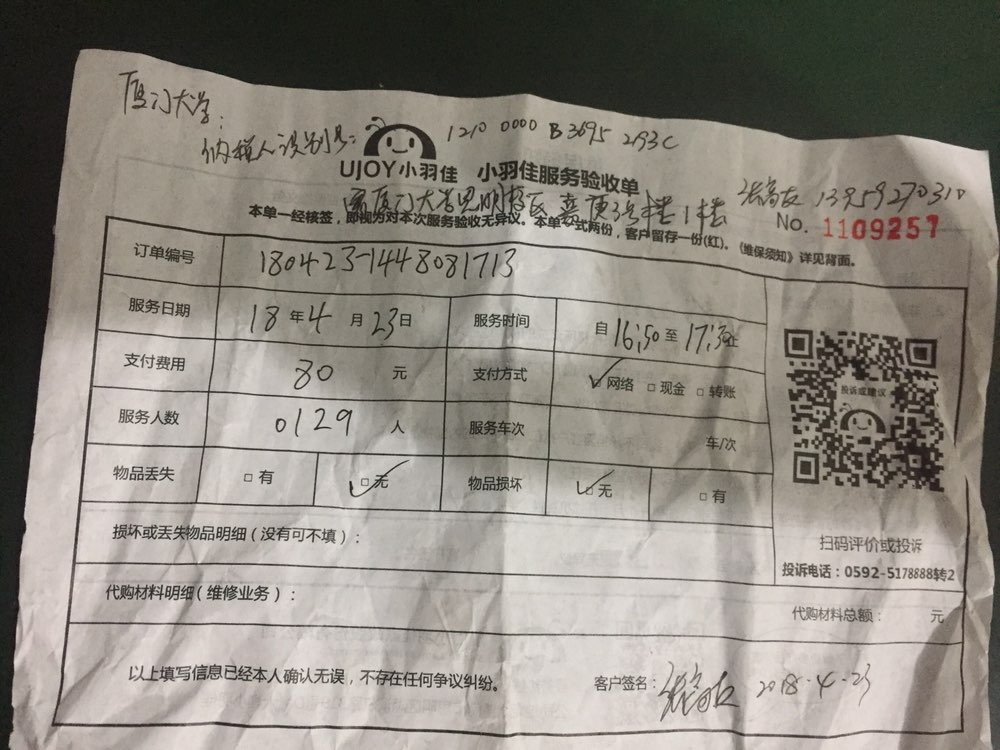 厦门大学:
纳税人识别号: 1210 0000 B3695 2193C
UJOY小羽佳 小羽佳服务验收单
厦门大学思明校区 楼1楼 13959270310
No. 1109257
本单一经核签,即视为对本次服务验收无异议。本单一式两份,客户留存一份(红)。《维保须知》详见背面。
订单编号 180423-1448081713
服务日期 18 年 4 月 23 日 服务时间 自 16:50 至 17:30 止
支付费用 80 元 支付方式 ☑网络 □现金 □转账
服务人数 0129 人 服务车次 车/次
物品丢失 □有 ☑无 物品损坏 ☑无 □有
投诉或建议
扫码评价或投诉
投诉电话:0592-5178888转2
损坏或丢失物品明细(没有可不填):
代购材料明细(维修业务): 代购材料总额: 元
以上填写信息已经本人确认无误,不存在任何争议纠纷。 客户签名: 2018.4.23